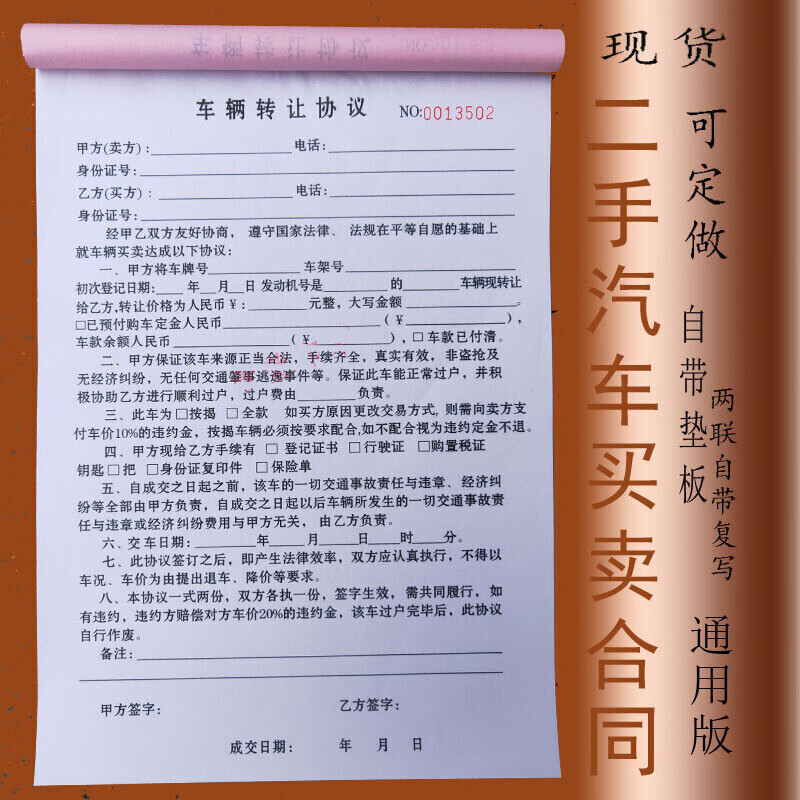 车辆转让协议 NO:0013502
甲方(卖方):________电话:________
身份证号:________
乙方(买方):________电话:________
身份证号:________
经甲乙双方友好协商， 遵守国家法律、 法规在平等自愿的基础上
就车辆买卖达成以下协议:
一、甲方将车牌号________车架号________
初次登记日期:____年__月__日 发动机号是________的________车辆现转让
给乙方,转让价格为人民币￥:________元整，大写金额________。
□已预付购车定金人民币________(￥________)，
车款余额人民币________(￥________)，□车款已付清。
二、甲方保证该车来源正当合法，手续齐全，真实有效，非盗抢及
无经济纠纷，无任何交通肇事逃逸事件等。保证此车能正常过户，并积
极协助乙方进行顺利过户，过户费由________负责。
三、此车为□按揭 □全款 如买方原因更改交易方式, 则需向卖方支
付车价10%的违约金，按揭车辆必须按要求配合,如不配合视为违约定金不退。
四、甲方现给乙方手续有 □ 登记证书 □行驶证 □购置税证
钥匙□把 □身份证复印件 □保险单
五、自成交之日起之前，该车的一切交通事故责任与违章、经济纠
纷等全部由甲方负责，自成交之日起以后车辆所发生的一切交通事故责
任与违章或经济纠纷费用与甲方无关， 由乙方负责。
六、交车日期:________年____月____日____时____分。
七、此协议签订之后，即产生法律效率，双方应认真执行，不得以
车况、车价为由提出退车、降价等要求。
八、本协议一式两份，双方各执一份，签字生效， 需共同履行，如
有违约，违约方赔偿对方车价20%的违约金，该车过户完毕后，此协议
自行作废。
备注:________
甲方签字: 乙方签字:
成交日期: 年 月 日
现货
二手汽车买卖合同
可定做
自带垫板
两联自带复写
通用版